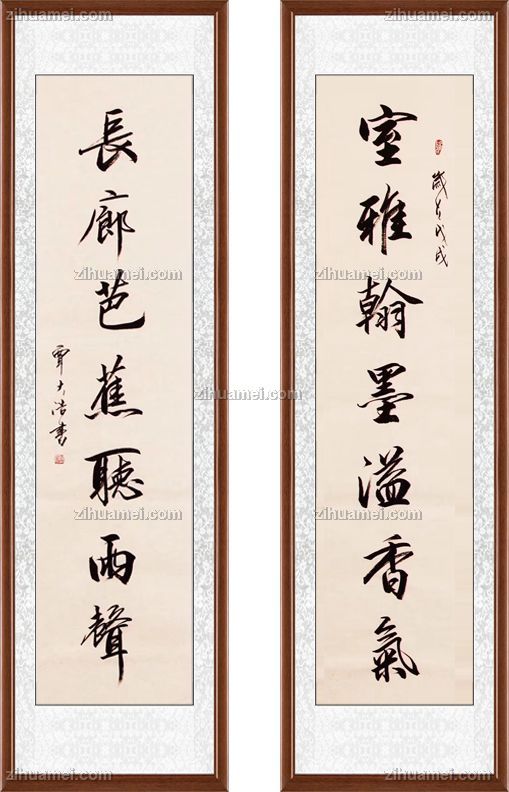 zihuamei.com zihuamei.com
歲在戊戌
室雅翰墨溢香氣
長廊芭蕉聽雨聲
覃大浩書
zihuamei.com zihuamei.com
zihuamei.com
zihuamei.com zihuamei.com
zihuamei.com zihuamei.com